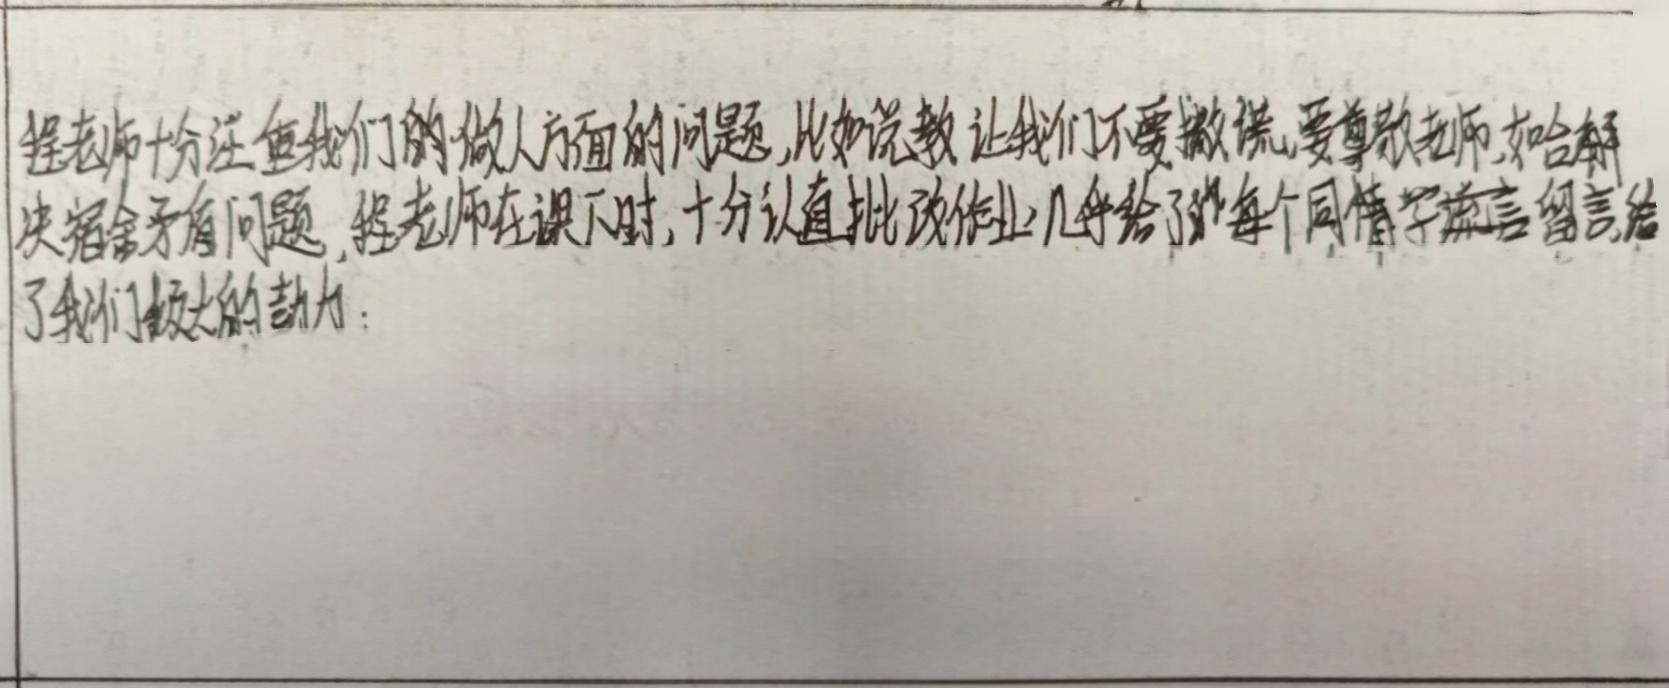 程老师十分注重我们的做人方面的问题,比如说教让我们不要撒谎,要尊敬老师,如台解
决宿舍矛盾问题,程老师在课下时,十分认真批改作业,几乎给了每个同情学留言,给
了我们极大的动力.